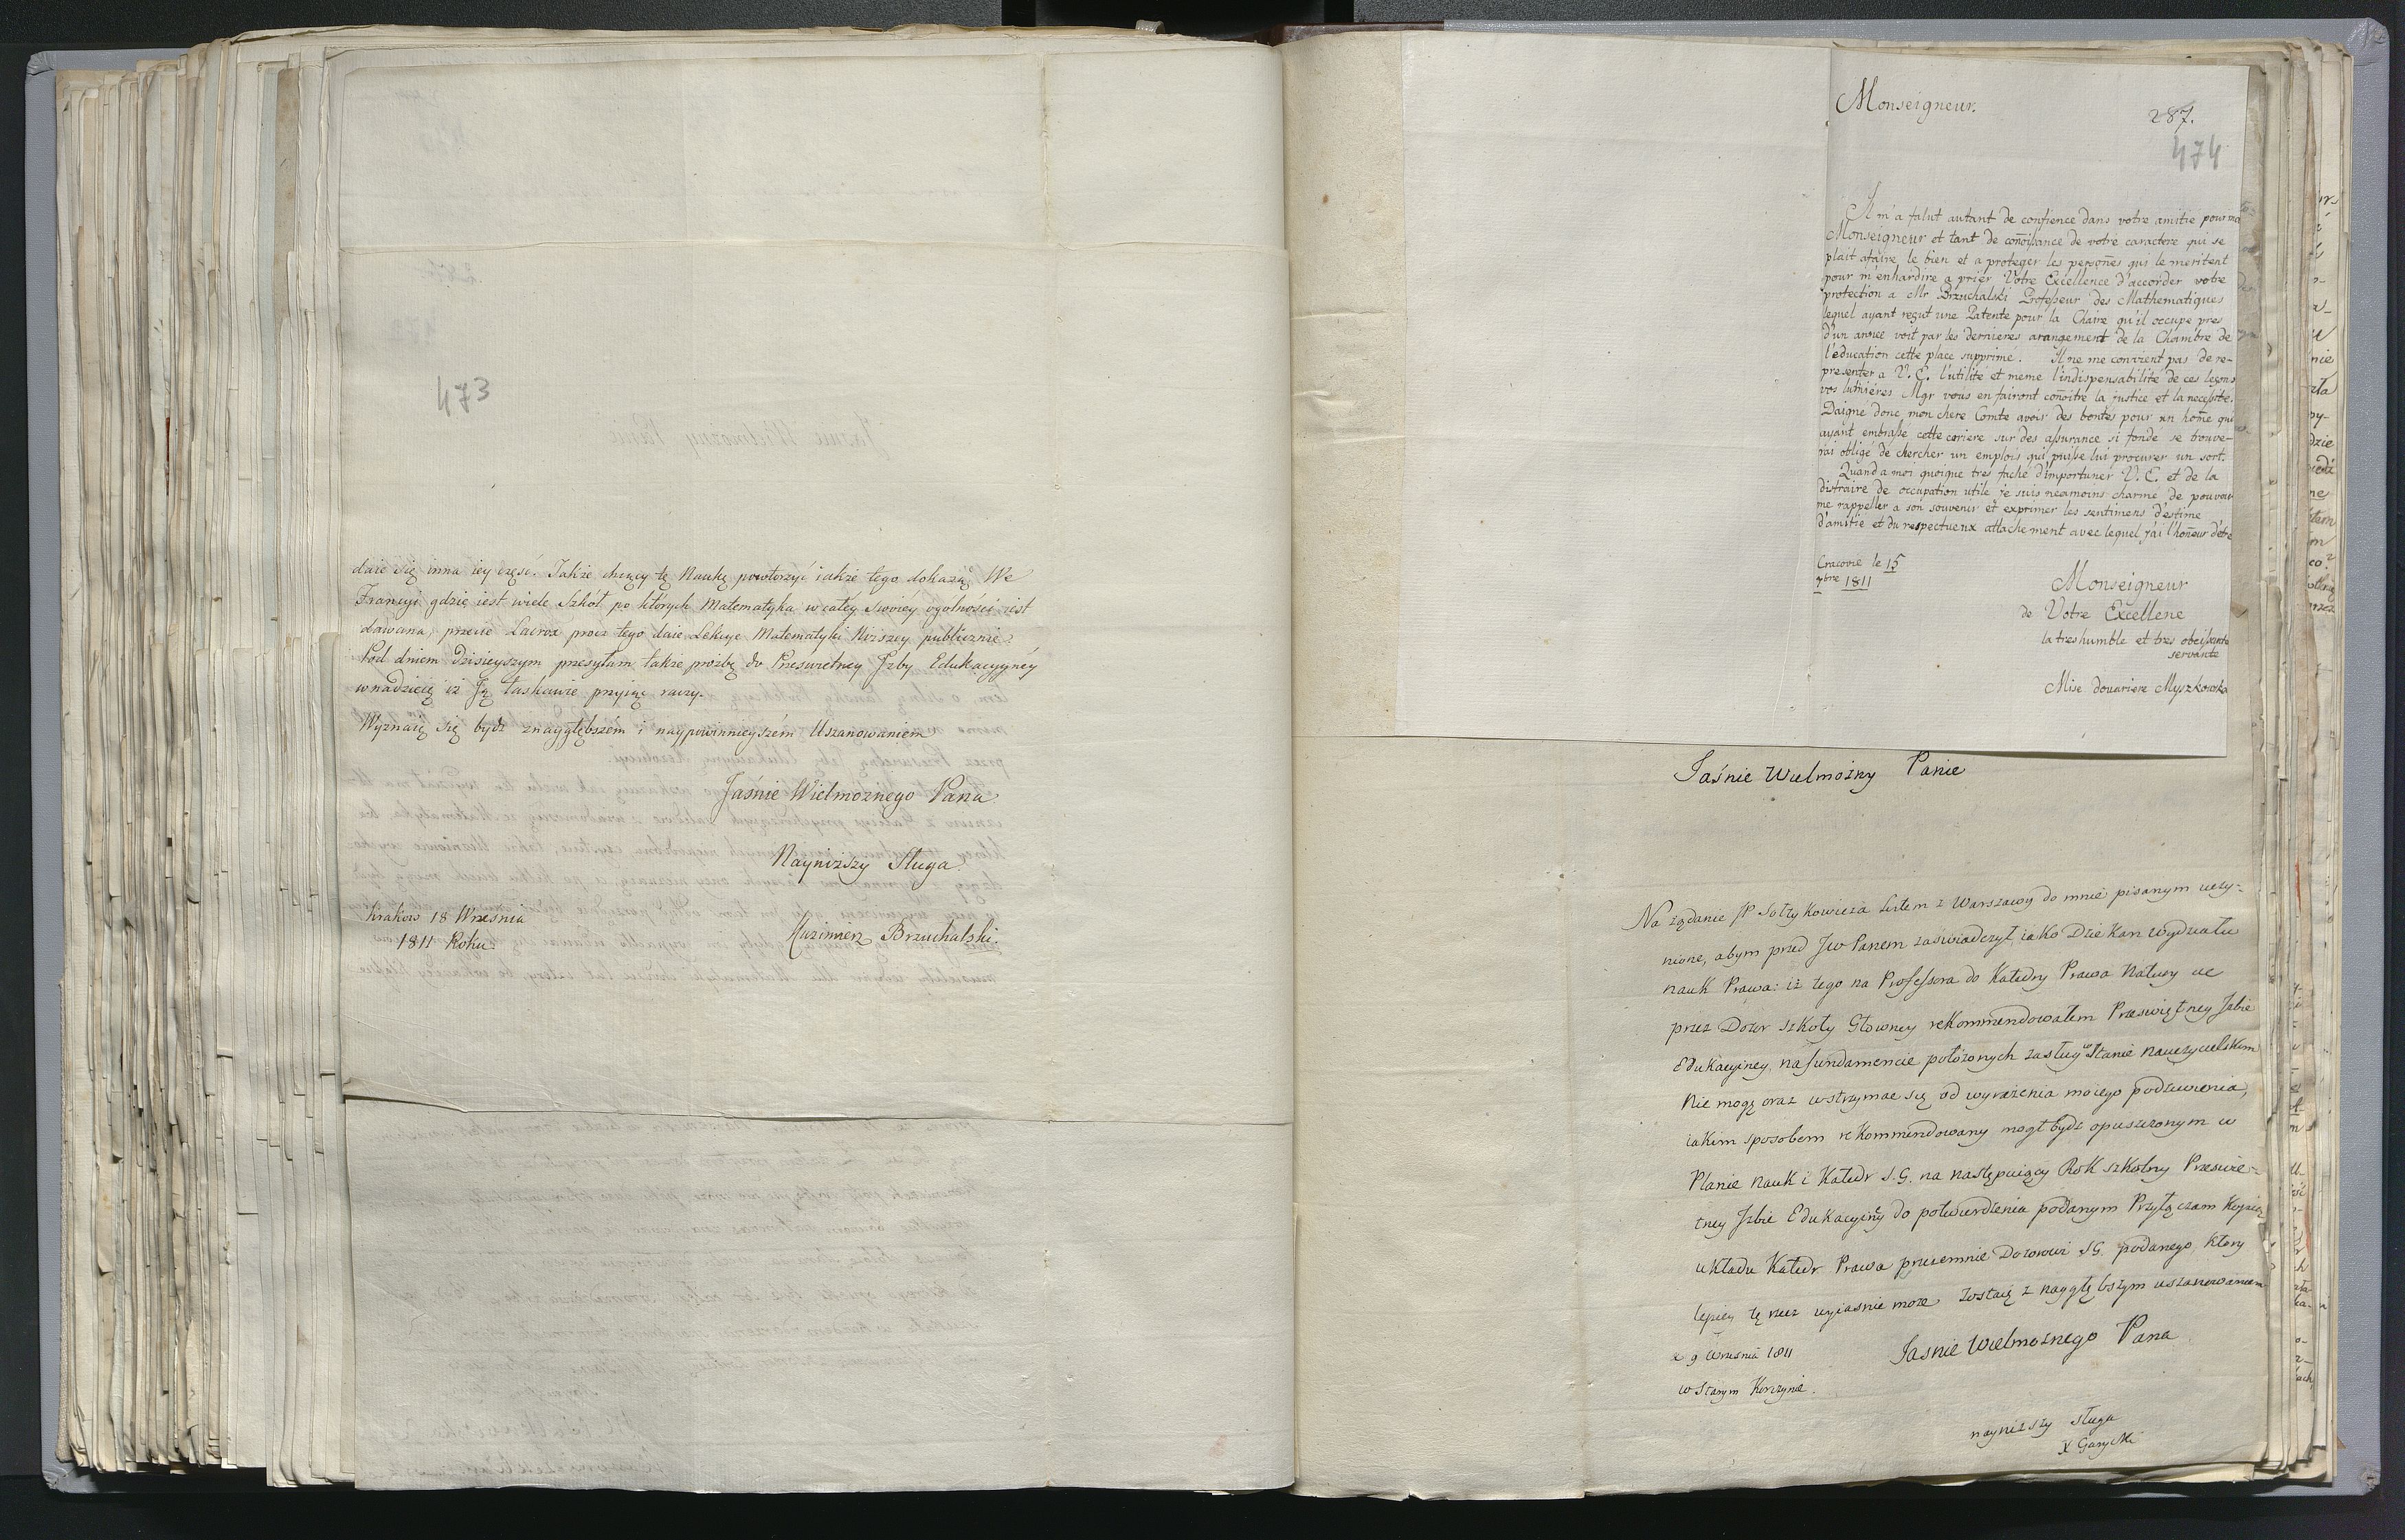 473
daie się inna iey częsć. Jakże chcący tę Naukę powtorzyć iakże tego dokażą? We
Francyi gdzie iest wiele Szkół po których Matematyka w całéy swoiéy ogólności iest
dawana, przecie Lacroix procz tego daie Lekcye Matematyki Niższey publicznie?
Pod dniem dzisieyszym przesyłam także proźbę do Prześwietney Jzby Edukacyynéy
w nadzieię iż Ją łaskawie przyiąć raczy.
Wyznaię się bydź z naygłębszém i naypowinnieyszém Uszanowaniem
Jaśnie Wielmożnego Pana
Nayniższy Sługa
Krakow 18 Wrzesnia
1811 Roku.
Kazimierz Brzuchalski.
Monseigneur.
287.
474
Il m'a falut autant de confience dans votre amitie pour moi
Monseigneur et tant de coñoissance de votre caractere qui se
plait afaire le bien et a proteger les persoñes qui le meritent
pour m'enhardire a prier Votre Excellence d'accorder votre
protection a Mr Brzuchalski Professeur des Mathematiques
lequel ayant reçut une Patente pour la Chaire qu'il occupe pres
d'un annee voit par les dernieres arangement de la Chambre de
l'education cette place supprimé. Il ne me convient pas de re-
presenter a V. E. l'utilité et meme l'indispensabilité de ces leçons
vos lumiéres Mgr vous en fairont coñoitre la justice et la necessité.
Daigné donc mon chere Comte avoir des bontés pour un home qui
ayant embrassé cette coriere sur des assurance si fondé se trouve-
rai obligé de chercher un emplois qui puisse lui procurer un sort.
Quand a moi quoique tres faché d'importuner V. E. et de la
distraire de occupation utile je suis neamoins charmé de pouvoir
me rappeller a son souvenir et exprimer les sentimens d'estime
d'amitie et du respectueux attachement avec lequel j'ai l'hoñeur d'étre
Cracovie le 15
7bre 1811
Monseigneur
de Votre Excellene
la tres humble et tres obeissante
servante
Mise douariere Myszkowska
Jaśnie Wielmożny Panie
Na żądanie JP Sołtykowicza listem z Warszawy do mnie pisanym uczy-
nione, abym przed JW Panem zaświadczył, iako Dziekan wydziału
nauk Prawa: iż tego na Professora do Katedry Prawa Natury etc
przez Dozor szkoły Głowney rekommendowałem Przeświętney Izbie
Edukacyiney, na fundamencie położonych zasług w Stanie nauczycielskim
Nie mogę oraz wstrzymać się od wyrażenia moiego podziwienia,
iakim sposobem rekommendowany mogł bydź opuszczonym w
Planie nauk i Katedr S.G. na następuiący Rok szkolny Przeswie-
tney Izbie Edukacyiney do potwierdzenia podanym Przyłączam Kopią
układu Katedr Prawa przezemnie Dozorowi SG. podanego, ktory
lepiey tę rzecz wyiasnić może Zostaię z naygłębszym uszanowaniem
Jasnie Wielmożnego Pana
d 9 Wrześnią 1811
w Starym Korczynie.
nayniższy sługa
X Garycki